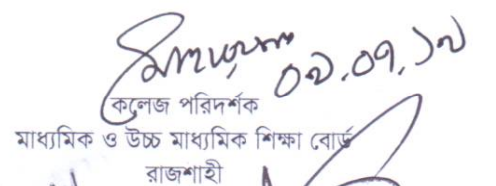 ০৯.০৭.১৭
কলেজ পরিদর্শক
মাধ্যমিক ও উচ্চ মাধ্যমিক শিক্ষা বোর্ড
রাজশাহী